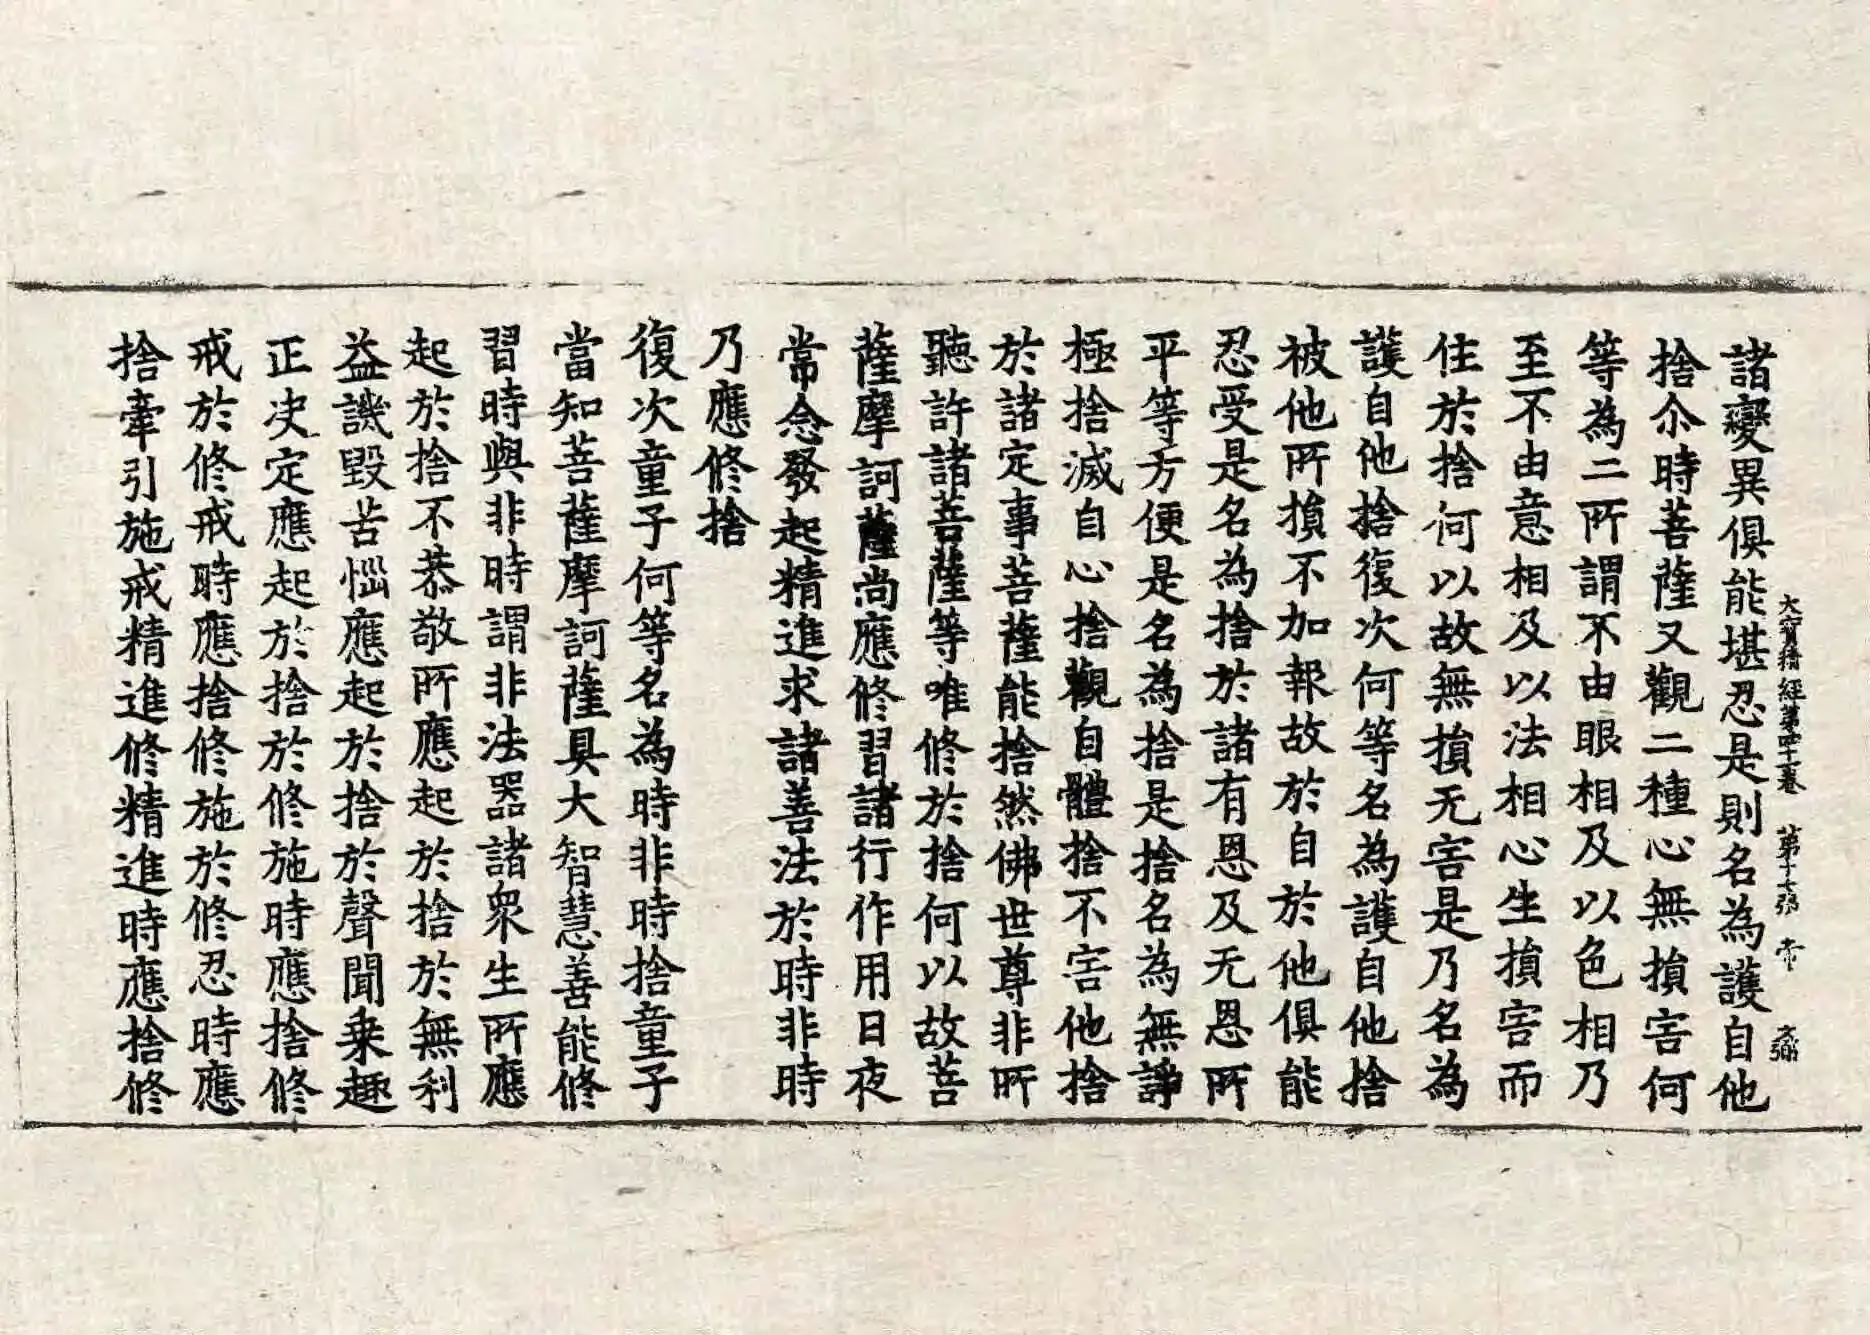 大寶積經第四十一卷 第十七張 帝
諸變異俱能堪忍是則名為護自他
捨尒時菩薩又觀二種心無損害何
等為二所謂不由眼相及以色相乃
至不由意相及以法相心生損害而
住於捨何以故無損无害是乃名為
護自他捨復次何等名為護自他捨
被他所損不加報故於自於他俱能
忍受是名為捨於諸有恩及无恩所
平等方便是名為捨是捨名為無諍
極捨滅自心捨觀自體捨不害他捨
於諸定事菩薩能捨然佛世尊非所
聽許諸菩薩等唯修於捨何以故菩
薩摩訶薩尚應修習諸行作用日夜
常念發起精進求諸善法於時非時
乃應修捨
復次童子何等名為時非時捨童子
當知菩薩摩訶薩具大智慧善能修
習時與非時謂非法器諸衆生所應
起於捨不恭敬所應起於捨於無利
益譏毀苦惱應起於捨於聲聞乗趣
正决定應起於捨於修施時應捨修
戒於修戒時應捨修施於修忍時應
捨牽引施戒精進修精進時應捨修